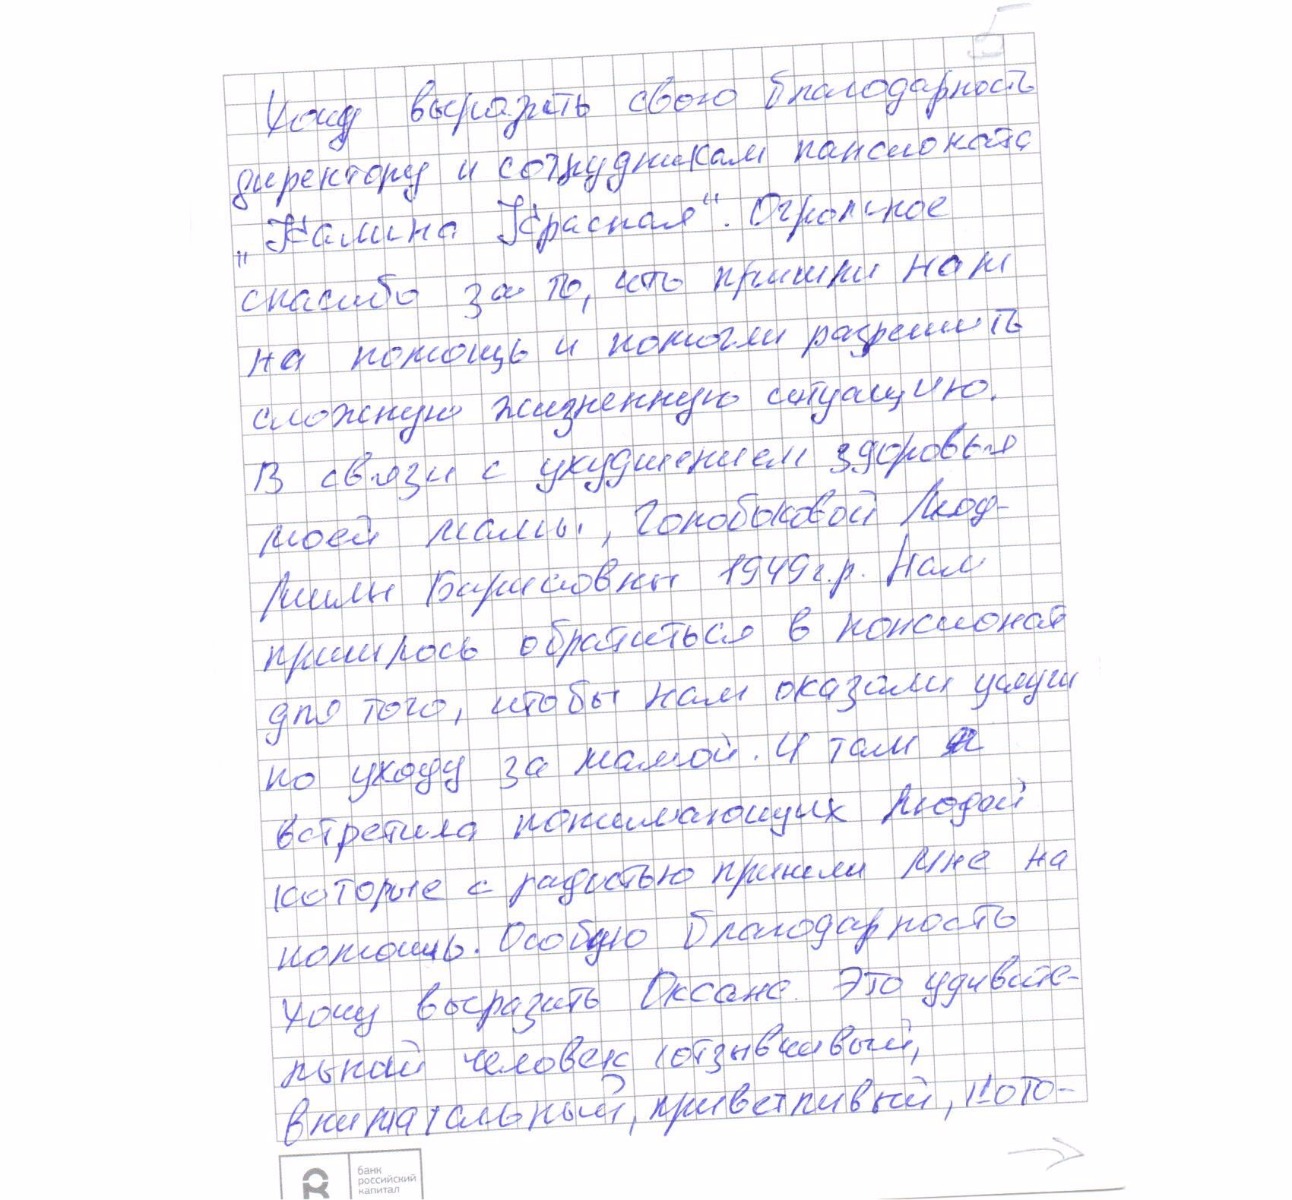 Хочу выразить свою благодарность
директору и сотрудникам пансионата
„Калина Красная“. Огромное
спасибо за то, что пришли нам
на помощь и помогли разрешить
сложную жизненную ситуацию.
В связи с ухудшением здоровья
моей мамы, Гонобоковой Люд-
милы Борисовны 1949г.р. Нам
пришлось обратиться в пансионат
для того, чтобы нам оказали услуги
по уходу за мамой. И там я
встретила понимающих людей
которые с радостью пришли мне на
помощь. Особую благодарность
хочу выразить Оксане. Это удивите-
льный человек отзывчивый,
внимательный, приветливый, кото-
банк
российский
капитал